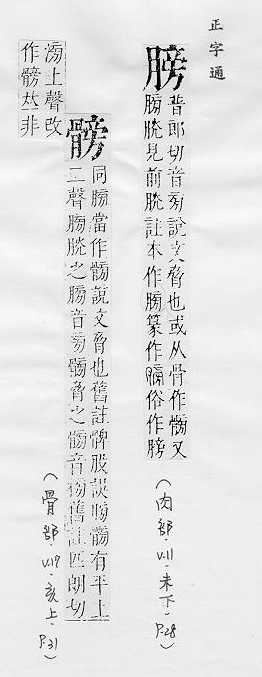 正字通
膀
普郎切音滂說文脅也或从骨作髈又
膀胱見前胱註本作膀篆作𦟛俗作膀
(肉部·V.11·未下·P.28)
髈
同膀當作髈說文脅也舊註髀股誤膀髈有平上
二聲膀胱之膀音滂髈脅之髈音𣂏舊註匹朗切
滂上聲改
作髈𠀤非
(骨部·V.19·亥上·P.31)